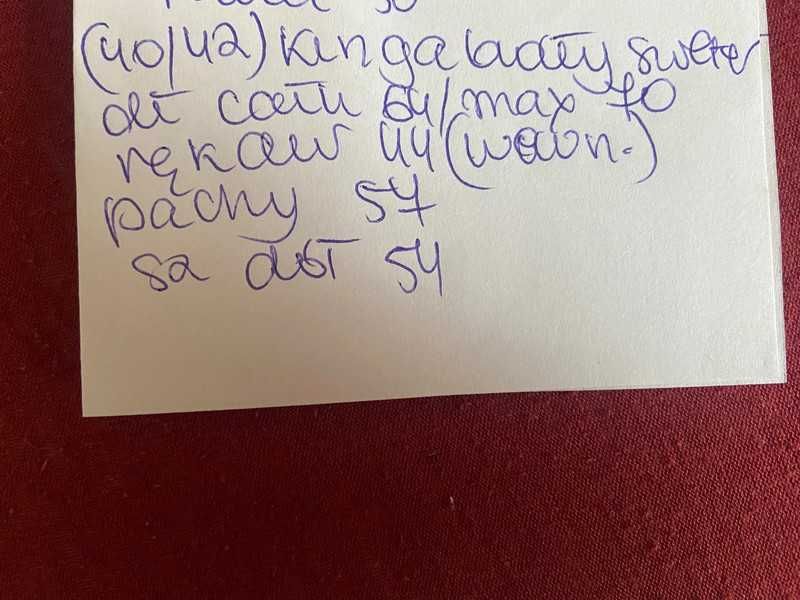 50
(40/42) Kinga ładny sweter
dł całk 64/max 70
rękaw 44 (wewn.)
pachy 57
sz dół 54